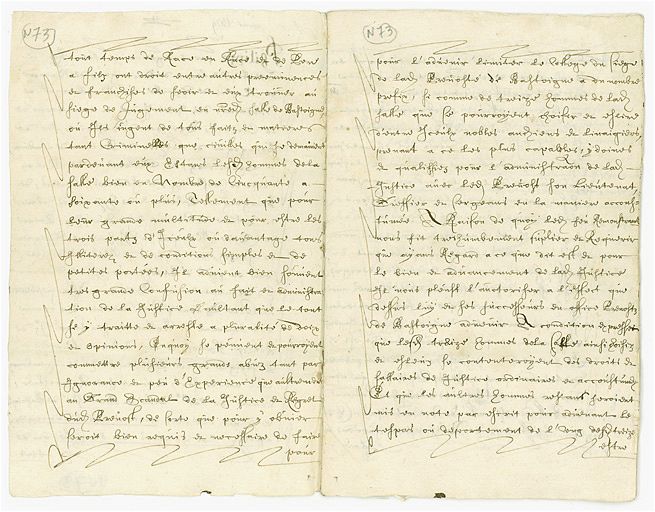 N 73
tout temps de Race en Race et de Pere
a filz ont droit entre autres preeminences
et franchises de seoir et eux trouver au
siege de Jugement en nredte sale de Bastoigne,
ou Ils jugent de tous faitz et matieres
tant Criminelles que civiles qui se demeinent
pardevant eux Estans lesdz hommes de la
sale bien en Nombre de Cincquante a
soixante ou plus, Tellement que pour
leur grande multitude et pour estre les
trois partz d'Iceulx ou davantage tous
et de conditions simples et de
petites portees, Il advient bien souvent
tres grande Confusion au fait et administra
tion de la Justice d'aultant que le tout
se y traitte et arreste a pluralité de voix
et opinions, Laquoy se peuvent et pourroyent
commettre plusieurs grands abuz tant par
Ignorance et peu d'Experience que aultrement
au Grand Scandal de la Justice et Regret
dudz Prevost, de sorte que pour y obvier
seroit bien requis et necessaire de faire
pour
N 73
pour l'advenir limiter le College du siege
de ladz Prevosté de Bastoigne a un nombre
prefix, si comme de treize hommes de ladz
sale que se pourroyent choisir et eslire
d'entre Iceulx nobles anchiens et linaigiers,
prenant a ce les plus capables, ydoines
et qualiffiez pour l'administration de ladz
Justice avec ledz Prevost son Lieutenant,
Greffier et Sergeans en la maniere accous
tumée A Raison de quoy ledz feu Remonstrant
nous fit treshumblement suplier et Requerir
que ayans Regard a ce que dit est et pour
le bien et advancement de ladz Justice
Il nous pleust l'auctoriser a l'effect que
dessus luy et ses successeurs en office Prevostz
de Bastoigne advenir A condition expresse
que lesdz treize hommes de la salle ainsi choisiz
et esleuz se contenteroyent des droits et
sallaires de Justice ordinaires et accoustumez
Et que les aultres hommes restans seroient
mis en note par escrit pour advenant le
trespas ou departement de l'ung desdz treize
estre